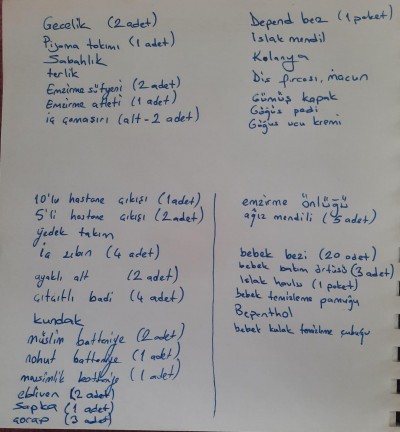 Gecelik (2 adet)
Pijama takımı (1 adet)
Sabahlık
terlik
Emzirme sütyeni (2 adet)
Emzirme atleti (1 adet)
iç çamaşırı (alt - 2 adet)
Depend bez (1 paket)
Islak mendil
Kolonya
Diş fırcası, macun
Gümüş kapak
Göğüs pedi
Göğüs ucu kremi
10'lu hastane çıkışı (1 adet)
5'li hastane çıkışı (2 adet)
yedek takım
iç zıbın (4 adet)
ayaklı alt (2 adet)
çıtçıtlı badi (4 adet)
kundak
müslin battaniye (2 adet)
nohut battaniye (1 adet)
mevsimlik battaniye (1 adet)
eldiven (2 adet)
şapka (1 adet)
çorap (3 adet)
emzirme önlüğü
ağız mendili (5 adet)
bebek bezi (20 adet)
bebek bakım örtüsü (3 adet)
Islak havlu (1 paket)
bebek temizleme pamuğu
Bepanthol
bebek kulak temizleme çubuğu